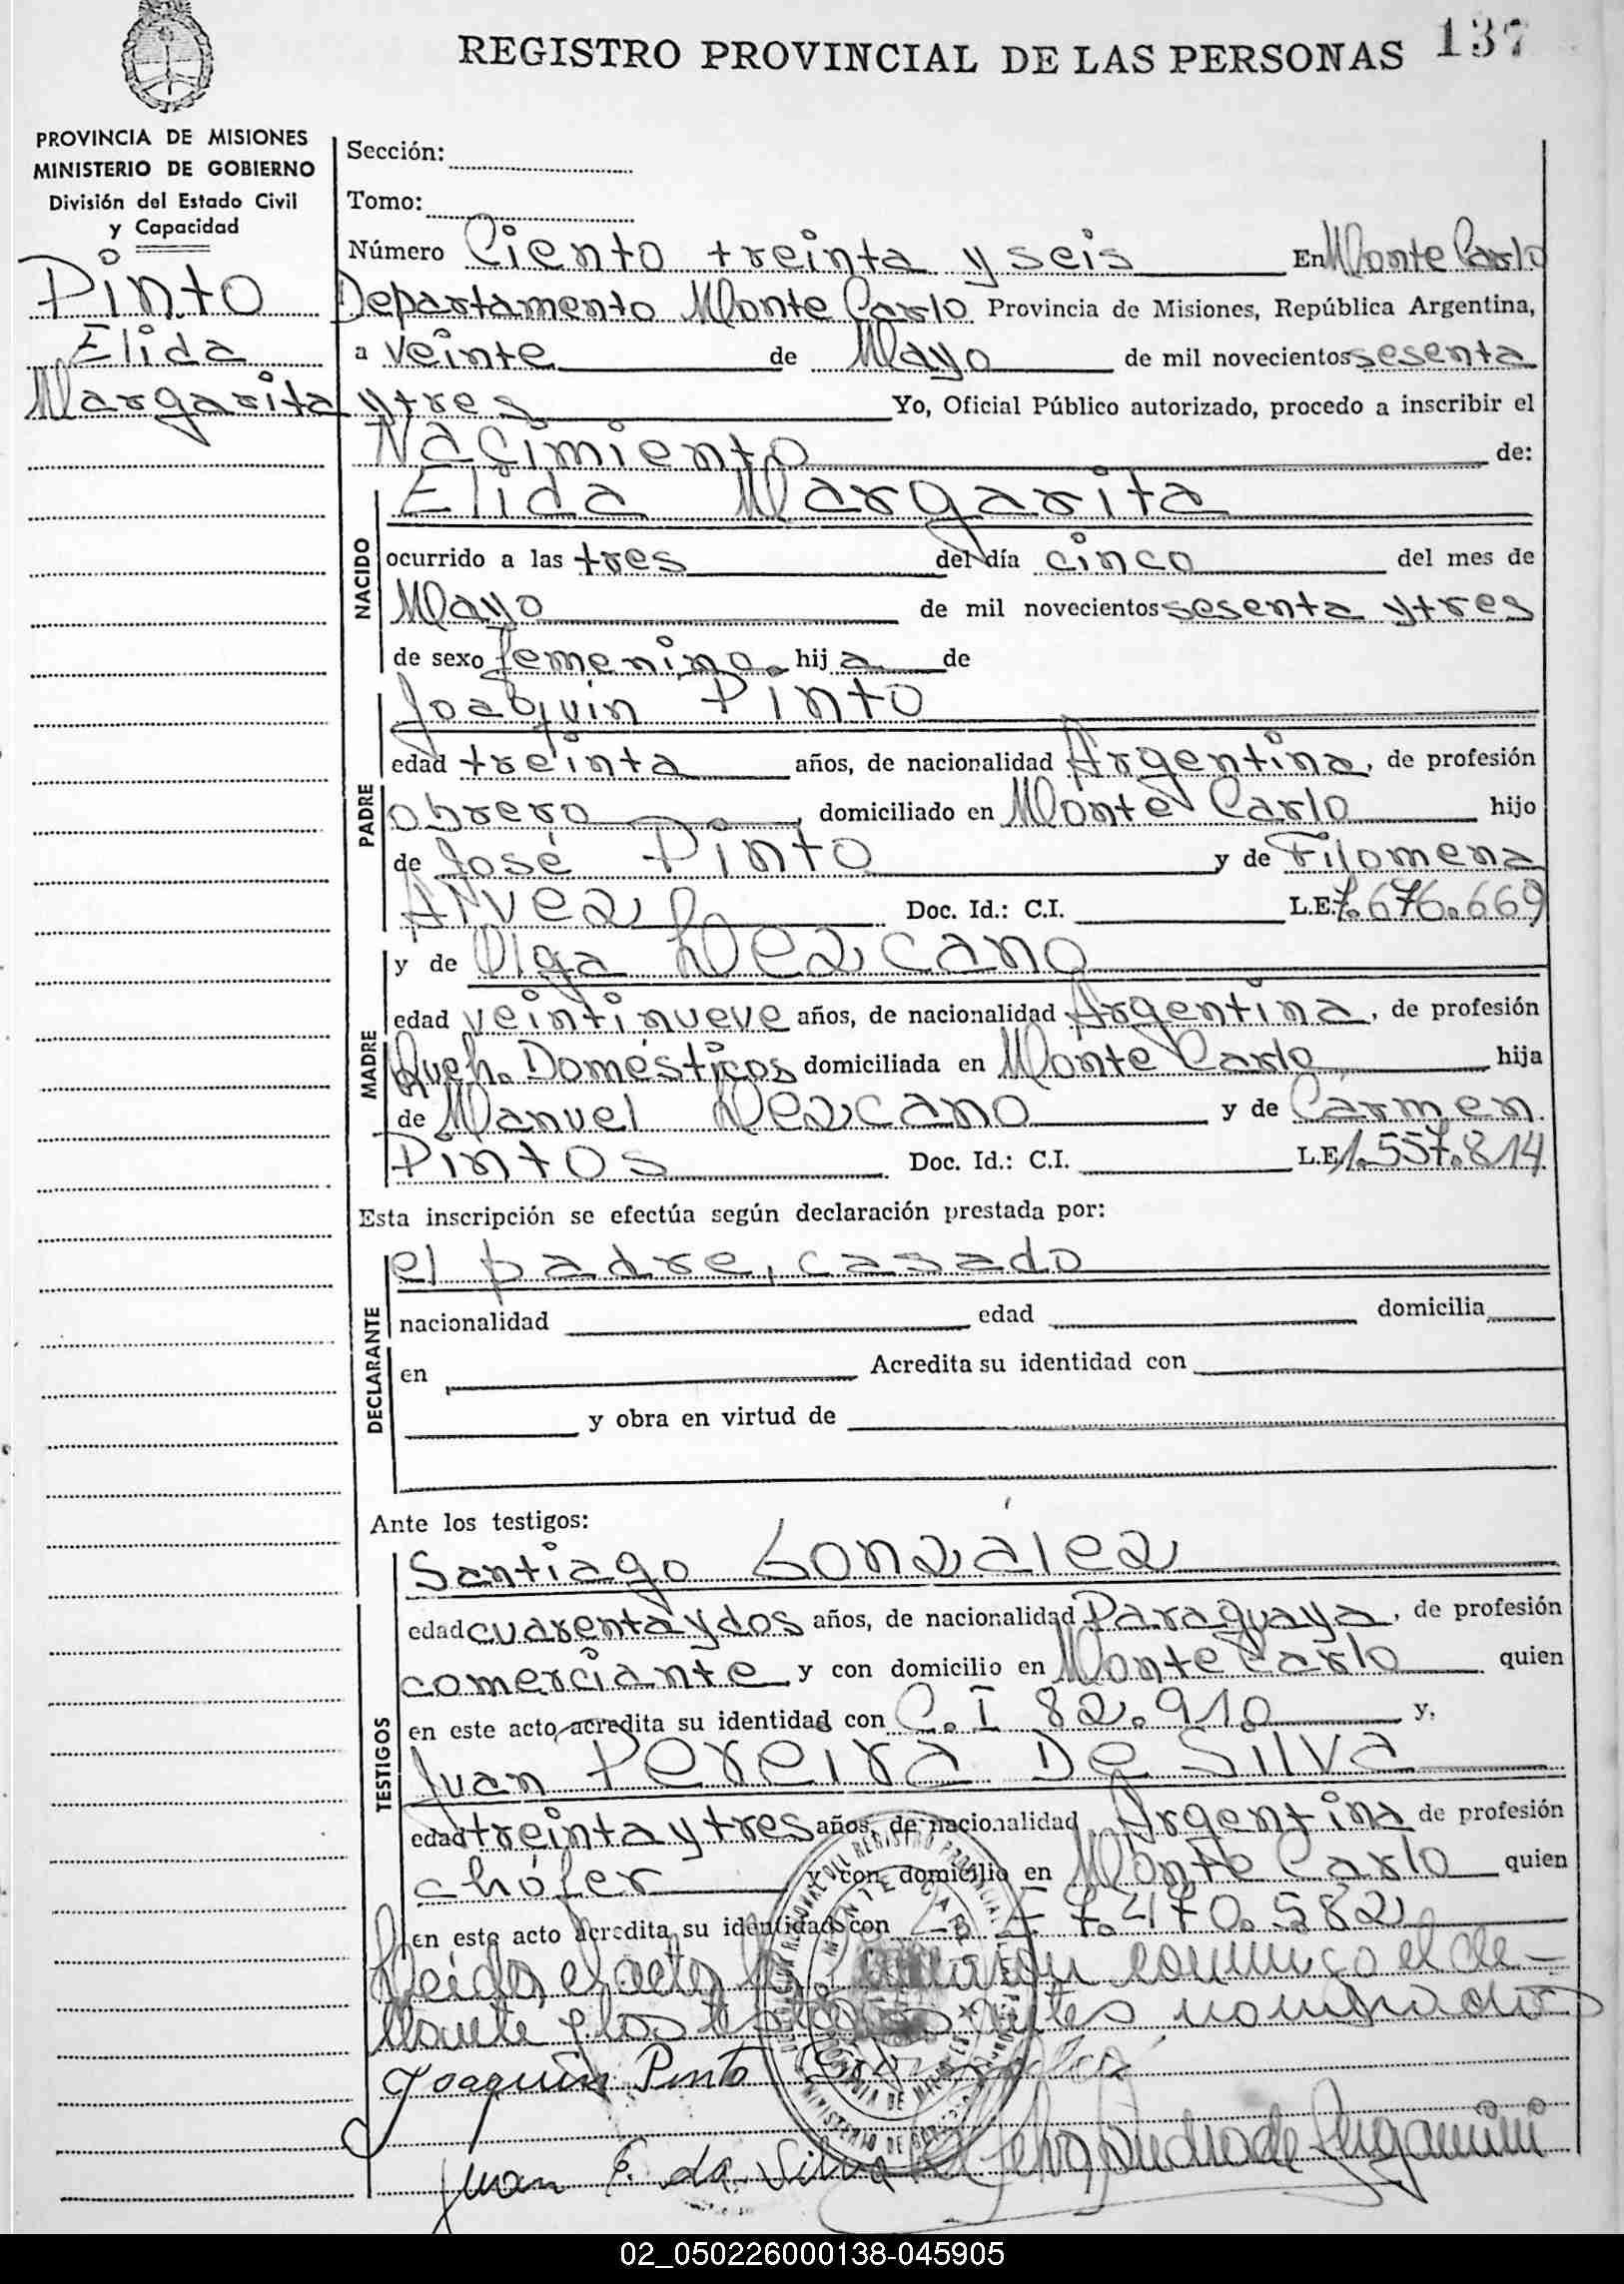 REGISTRO PROVINCIAL DE LAS PERSONAS 137
PROVINCIA DE MISIONES
MINISTERIO DE GOBIERNO
División del Estado Civil
y Capacidad
Pinto
Elida
Margarita
Sección:
Tomo:
Número Ciento treinta y seis En Monte Carlo
Departamento Monte Carlo Provincia de Misiones, República Argentina,
a veinte de Mayo de mil novecientos sesenta
y tres Yo, Oficial Público autorizado, procedo a inscribir el
Nacimiento de:
NACIDO
Elida Margarita
ocurrido a las tres del día cinco del mes de
Mayo de mil novecientos sesenta y tres
de sexo femenino. hija de
PADRE
Joaquin Pinto
edad treinta años, de nacionalidad Argentina, de profesión
obrero, domiciliado en Monte Carlo hijo
de José Pinto y de Filomena
Alvez Doc. Id.: C.I. L.E. 7.676.669
MADRE
y de Olga Lezcano
edad veintinueve años, de nacionalidad Argentina, de profesión
Queh. Domésticos domiciliada en Monte Carlo hija
de Manuel Lezcano y de Cármen
Pintos Doc. Id.: C.I. L.E. 1.557.814
Esta inscripción se efectúa según declaración prestada por:
DECLARANTE
el padre, casado
nacionalidad edad domicilia
en Acredita su identidad con
y obra en virtud de
Ante los testigos:
TESTIGOS
Santiago González
edad cuarenta y dos años, de nacionalidad Paraguaya, de profesión
comerciante y con domicilio en Monte Carlo quien
en este acto acredita su identidad con C.I 82.910 y,
Juan Pereira De Silva
edad treinta y tres años, de nacionalidad Argentina de profesión
chófer y con domicilio en Monte Carlo quien
en este acto acredita su identidad con L.E 7.470.582
Leida el acta la conmigo el de-
clarante y los testigos antes nombrados
Joaquin Pinto
Juan P. da Silva
MONTE CARLO
02_050226000138-045905